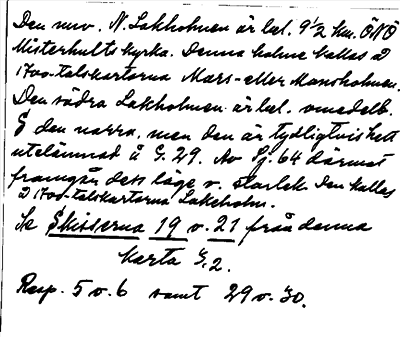 Den nuv. N. Lakholmen är bel. 9½ km. ÖNÖ
Misterhults kyrka. Denna holme kallas å
1700-talskartorna Mars- eller Mansholmen.
Den södra Lakholmen är bel. omedelb.
S den norra, men den är tydligtvis helt
utelämnad å G. 29. Av Sj. 64 däremot
framgår dess läge o. storlek. Den kallas
å 1700-talskartorna Lakeholm.
Se Skisserna 19 o. 21 från denna
karta G. 2.
Resp. 5 o. 6 samt 29 o. 30.